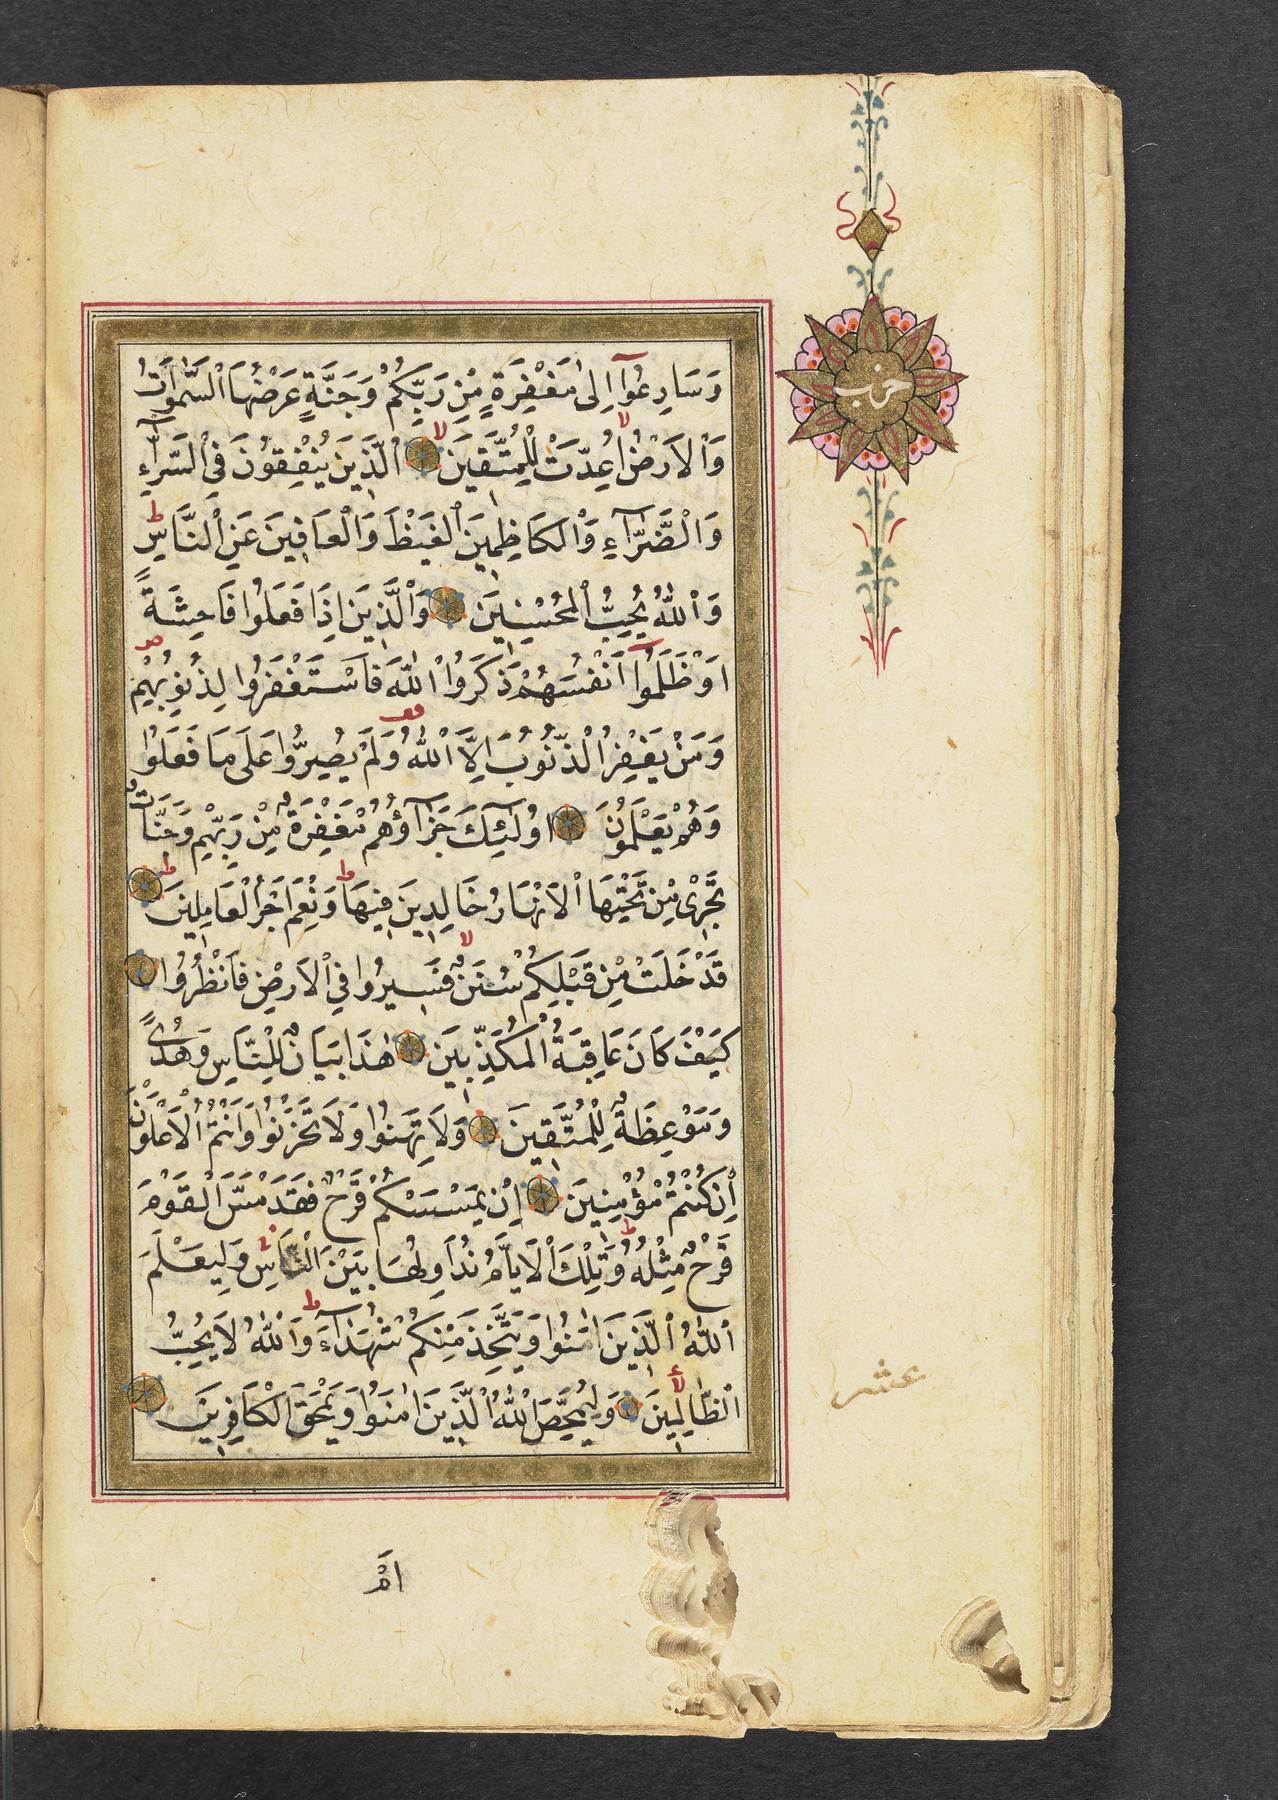 حزب
وَسَارِعُوٓا اِلٰى مَغْفِرَةٍ مِنْ رَبِّكُمْ وَجَنَّةٍ عَرْضُهَا السَّمٰوَاتُ
وَالْاَرْضُ اُعِدَّتْ لِلْمُتَّقِينَ اَلَّذِينَ يُنْفِقُونَ فِي السَّرَّٓاءِ
وَالضَّرَّٓاءِ وَالْكَاظِمِينَ الْغَيْظَ وَالْعَافِينَ عَنِ النَّاسِ
وَاللّٰهُ يُحِبُّ الْمُحْسِنِينَ وَالَّذِينَ اِذَا فَعَلُوا فَاحِشَةً
اَوْ ظَلَمُوٓا اَنْفُسَهُمْ ذَكَرُوا اللّٰهَ فَاسْتَغْفَرُوا لِذُنُوبِهِمْ
وَمَنْ يَغْفِرُ الذُّنُوبَ اِلَّا اللّٰهُ وَلَمْ يُصِرُّوا عَلٰى مَا فَعَلُوا
وَهُمْ يَعْلَمُونَ اُولٰٓئِكَ جَزَٓاؤُهُمْ مَغْفِرَةٌ مِنْ رَبِّهِمْ وَجَنَّاتٌ
تَجْرِي مِنْ تَحْتِهَا الْاَنْهَارُ خَالِدِينَ فِيهَا وَنِعْمَ اَجْرُ الْعَامِلِينَ
قَدْ خَلَتْ مِنْ قَبْلِكُمْ سُنَنٌ فَسِيرُوا فِي الْاَرْضِ فَانْظُرُوا
كَيْفَ كَانَ عَاقِبَةُ الْمُكَذِّبِينَ هٰذَا بَيَانٌ لِلنَّاسِ وَهُدًى
وَمَوْعِظَةٌ لِلْمُتَّقِينَ وَلَا تَهِنُوا وَلَا تَحْزَنُوا وَاَنْتُمُ الْاَعْلَوْنَ
اِنْ كُنْتُمْ مُؤْمِنِينَ اِنْ يَمْسَسْكُمْ قَرْحٌ فَقَدْ مَسَّ الْقَوْمَ
قَرْحٌ مِثْلُهُ وَتِلْكَ الْاَيَّامُ نُدَاوِلُهَا بَيْنَ النَّاسِ وَلِيَعْلَمَ
اللّٰهُ الَّذِينَ اٰمَنُوا وَيَتَّخِذَ مِنْكُمْ شُهَدَٓاءَ وَاللّٰهُ لَا يُحِبُّ
الظَّالِمِينَ وَلِيُمَحِّصَ اللّٰهُ الَّذِينَ اٰمَنُوا وَيَمْحَقَ الْكَافِرِينَ
عشر
اَمْ